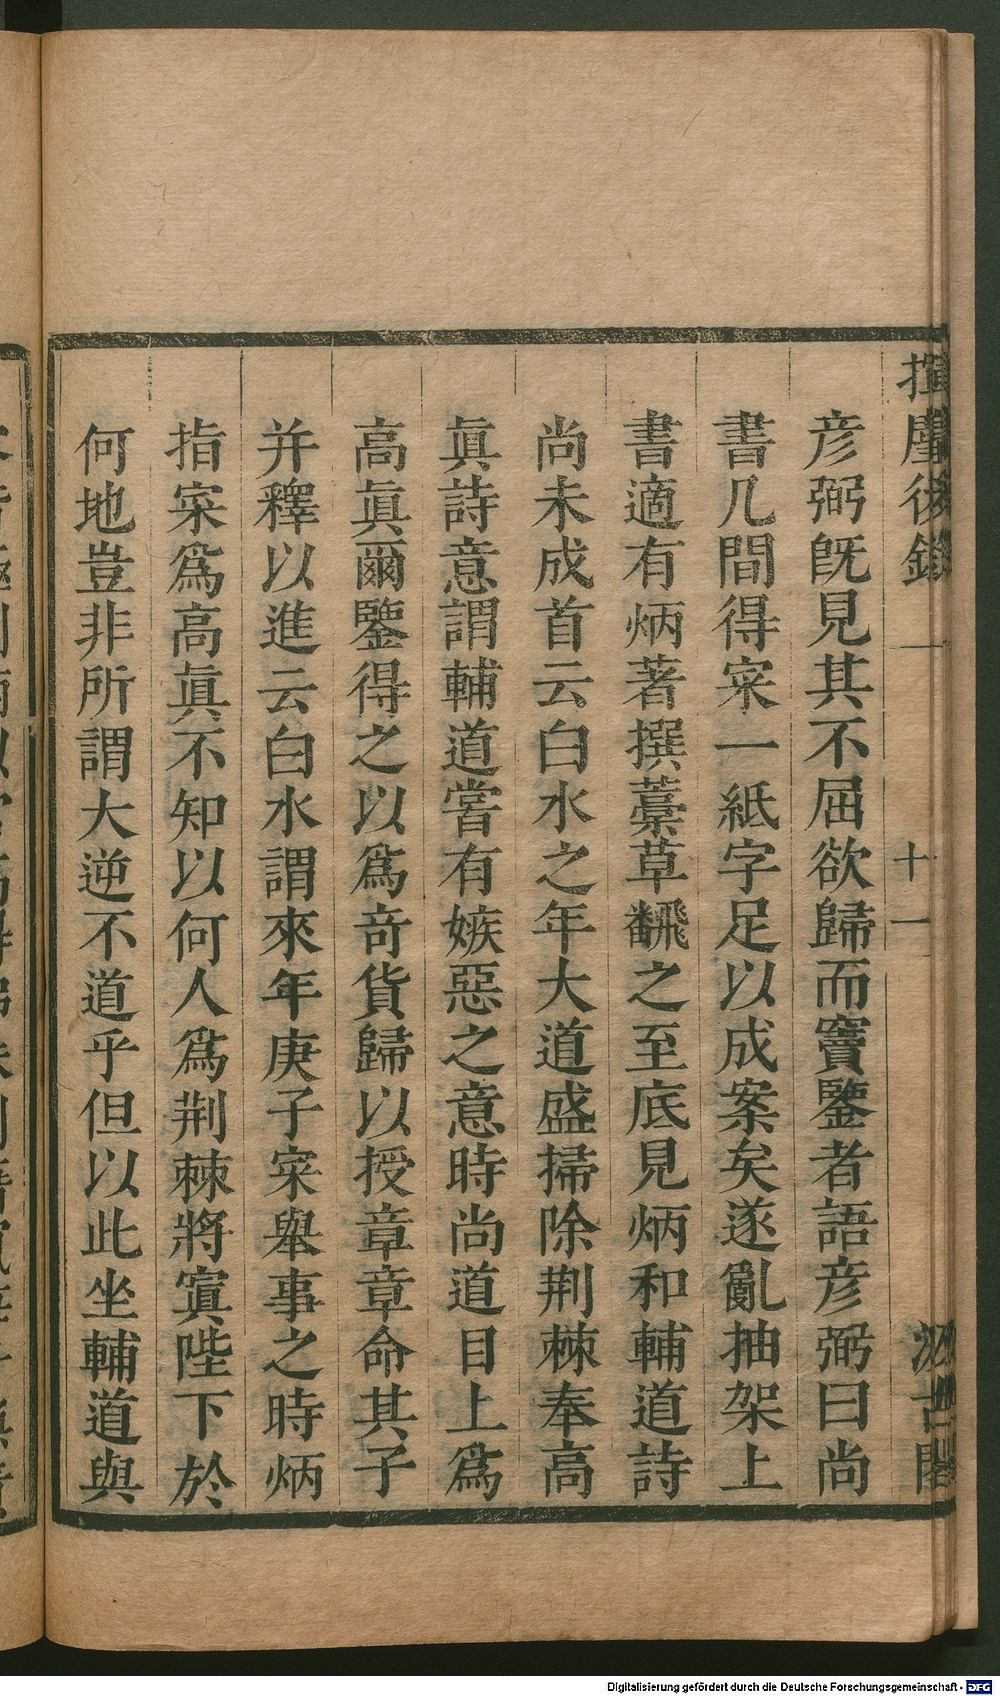 揮麈後錄 一 十一 汲古閣
彦弼旣見其不屈欲歸而竇鑒者語彦弼曰尚
書几間得寀一紙字足以成案矣遂亂抽架上
書適有炳著撰藁草飜之至底見炳和輔道詩
尚未成首云白水之年大道盛掃除荆棘奉高
眞詩意謂輔道嘗有嫉惡之意時尚道目上爲
高眞爾鑒得之以爲奇貨歸以授章章命其子
并釋以進云白水謂來年庚子寀舉事之時炳
指寀爲高眞不知以何人爲荆棘將寘陛下於
何地豈非所謂大逆不道乎但以此坐輔道與
Digitalisierung gefördert durch die Deutsche Forschungsgemeinschaft - DFG